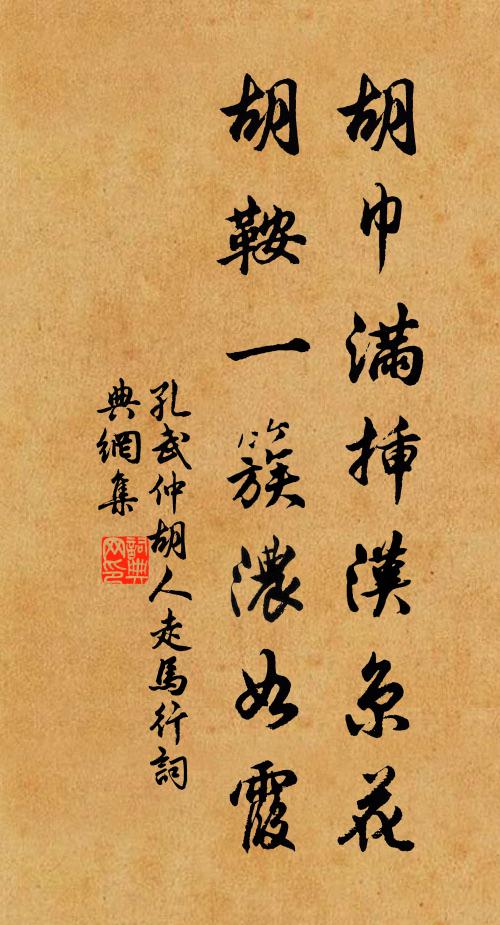 胡巾滿揷漢京花
胡鞍一簇濃如霞
孔武仲胡人走馬行詞
典網集
詞典網印